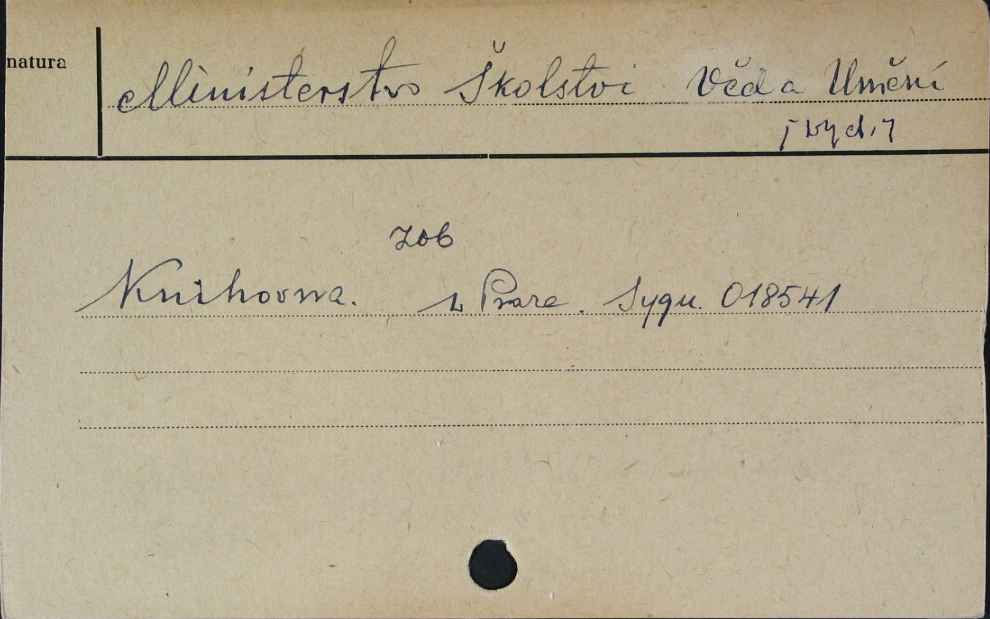 natura
Ministerstvo Školstvi Věd a Umění
[vyd.]
zob
Knihovna. Prace. Sygn. 018541